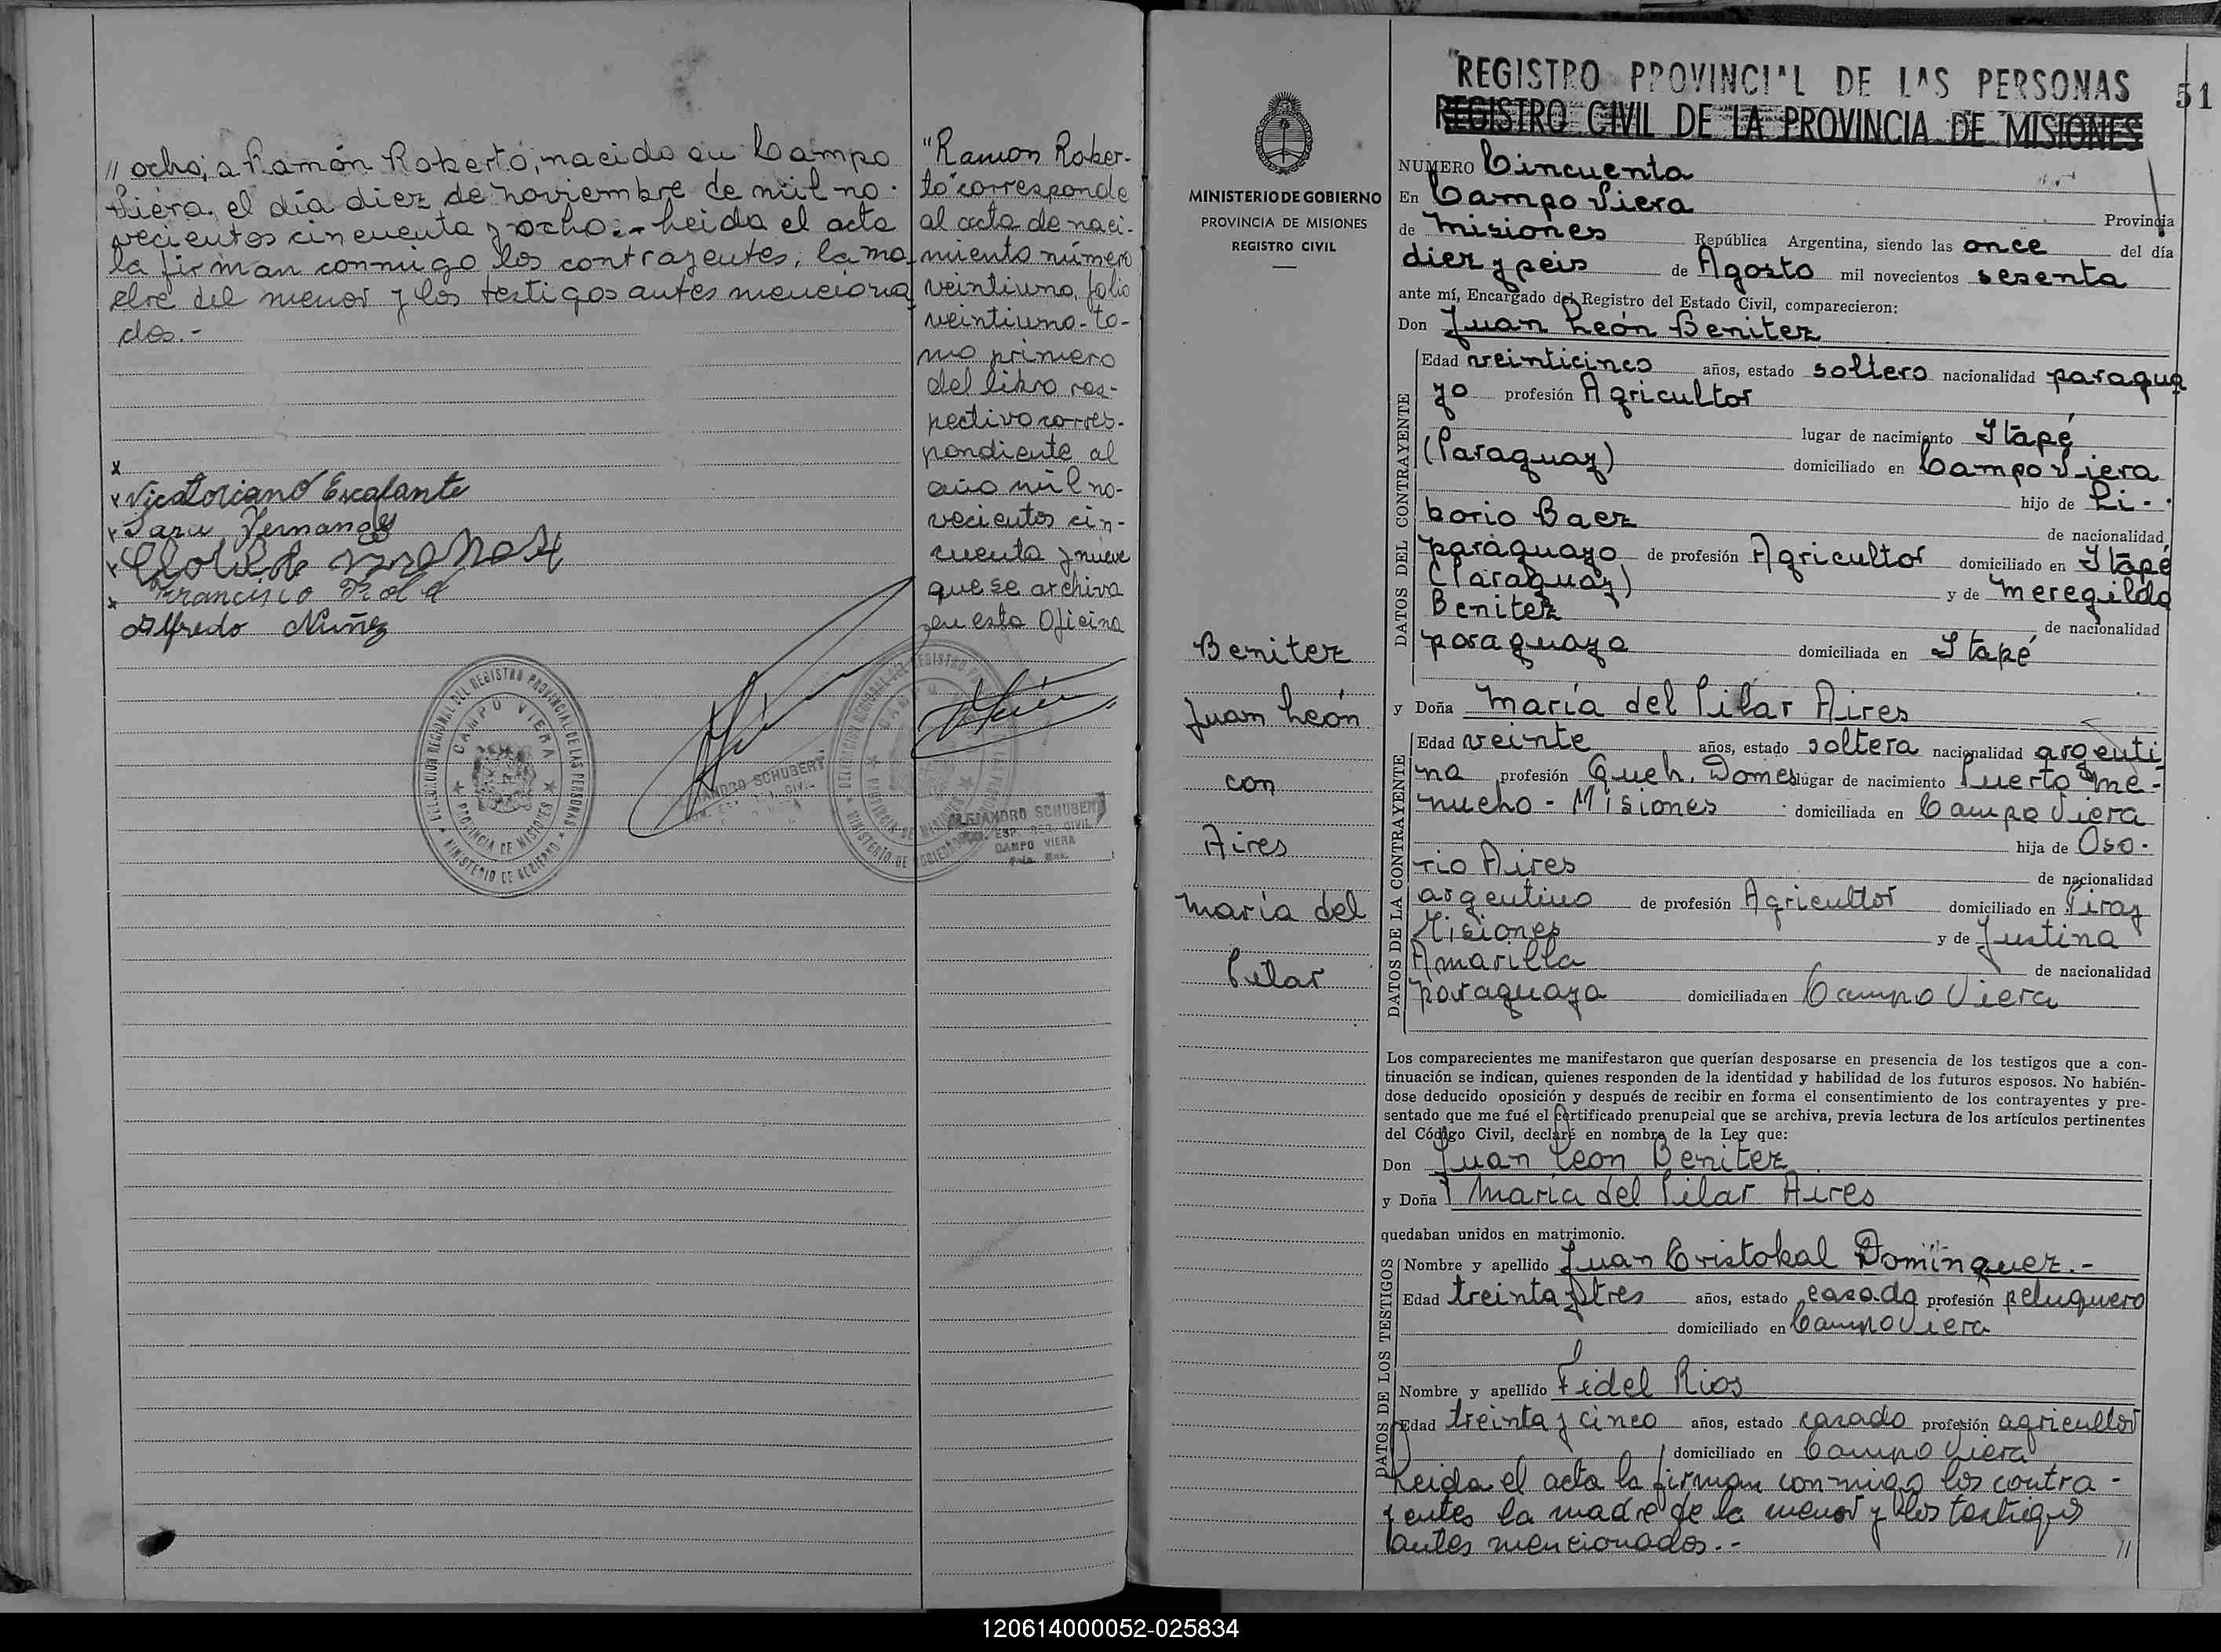 // ocho; a Ramón Roberto, nacido en Campo
Viera, el día diez de noviembre de mil no-
vecientos cincuenta y ocho.- Leida el acta
la firman conmigo los contrayentes, la ma-
dre del menor y los testigos antes menciona
dos.-
x
x Vicatoriano Escalante
x Sara Fernandez
x Clotilde
x Francisco
Alfredo Nuñez
DELEGACION REGIONAL DEL REGISTRO PROVINCIAL DE LAS PERSONAS
CAMPO VIERA
PROVINCIA DE MISIONES
MINISTERIO DE GOBIERNO
ALEJANDRO SCHUBERT
"Ramon Rober-
to" corresponde
al acta de naci-
miento número
veintiuno, folio
veintiuno-to-
mo primero
del libro res-
pectivo corres-
pondiente al
año mil no-
vecientos cin-
cuenta y nueve
que se archiva
en esta Oficina
ALEJANDRO SCHUBERT
CAMPO VIERA
MINISTERIO DE GOBIERNO
PROVINCIA DE MISIONES
REGISTRO CIVIL
Benitez
Juan León
con
Aires
María del
Pilar
REGISTRO PROVINCIAL DE LAS PERSONAS
51
REGISTRO CIVIL DE LA PROVINCIA DE MISIONES
NUMERO Cincuenta
En Campo Viera Provincia
de Misiones República Argentina, siendo las once del día
diez y seis de Agosto mil novecientos sesenta
ante mí, Encargado del Registro del Estado Civil, comparecieron:
Don Juan León Benitez
DATOS DEL CONTRAYENTE
Edad veinticinco años, estado soltero nacionalidad paragua
yo profesión Agricultor
lugar de nacimiento Itapé
(Paraguay) domiciliado en Campo Viera
hijo de Li-
borio Baez de nacionalidad
paraguayo de profesión Agricultor domiciliado en Itapé
(Paraguay) y de Meregilda
Benitez de nacionalidad
paraguaya domiciliada en Itapé
y Doña María del Pilar Aires
DATOS DE LA CONTRAYENTE
Edad veinte años, estado soltera nacionalidad argenti
na profesión Queh. Domes lugar de nacimiento Puerto Me-
nucho - Misiones domiciliada en Campo Viera
hija de Oso-
rio Aires de nacionalidad
argentino de profesión Agricultor domiciliado en Piray
Misiones y de Justina
Amarilla de nacionalidad
paraguaya domiciliada en Campo Viera
Los comparecientes me manifestaron que querían desposarse en presencia de los testigos que a con-
tinuación se indican, quienes responden de la identidad y habilidad de los futuros esposos. No habién-
dose deducido oposición y después de recibir en forma el consentimiento de los contrayentes y pre-
sentado que me fué el certificado prenupcial que se archiva, previa lectura de los artículos pertinentes
del Código Civil, declaré en nombre de la Ley que:
Don Juan Leon Benitez
y Doña María del Pilar Aires
quedaban unidos en matrimonio.
DATOS DE LOS TESTIGOS
Nombre y apellido Juan Cristobal Dominguez.-
Edad treinta y tres años, estado casado profesión peluquero
domiciliado en Campo Viera
Nombre y apellido Fidel Rios
Edad treinta y cinco años, estado casado profesión agricultor
domiciliado en Campo Viera
Leida el acta la firman conmigo los contra-
yentes la madre de la menor y los testigos
antes mencionados.- //
120614000052-025834